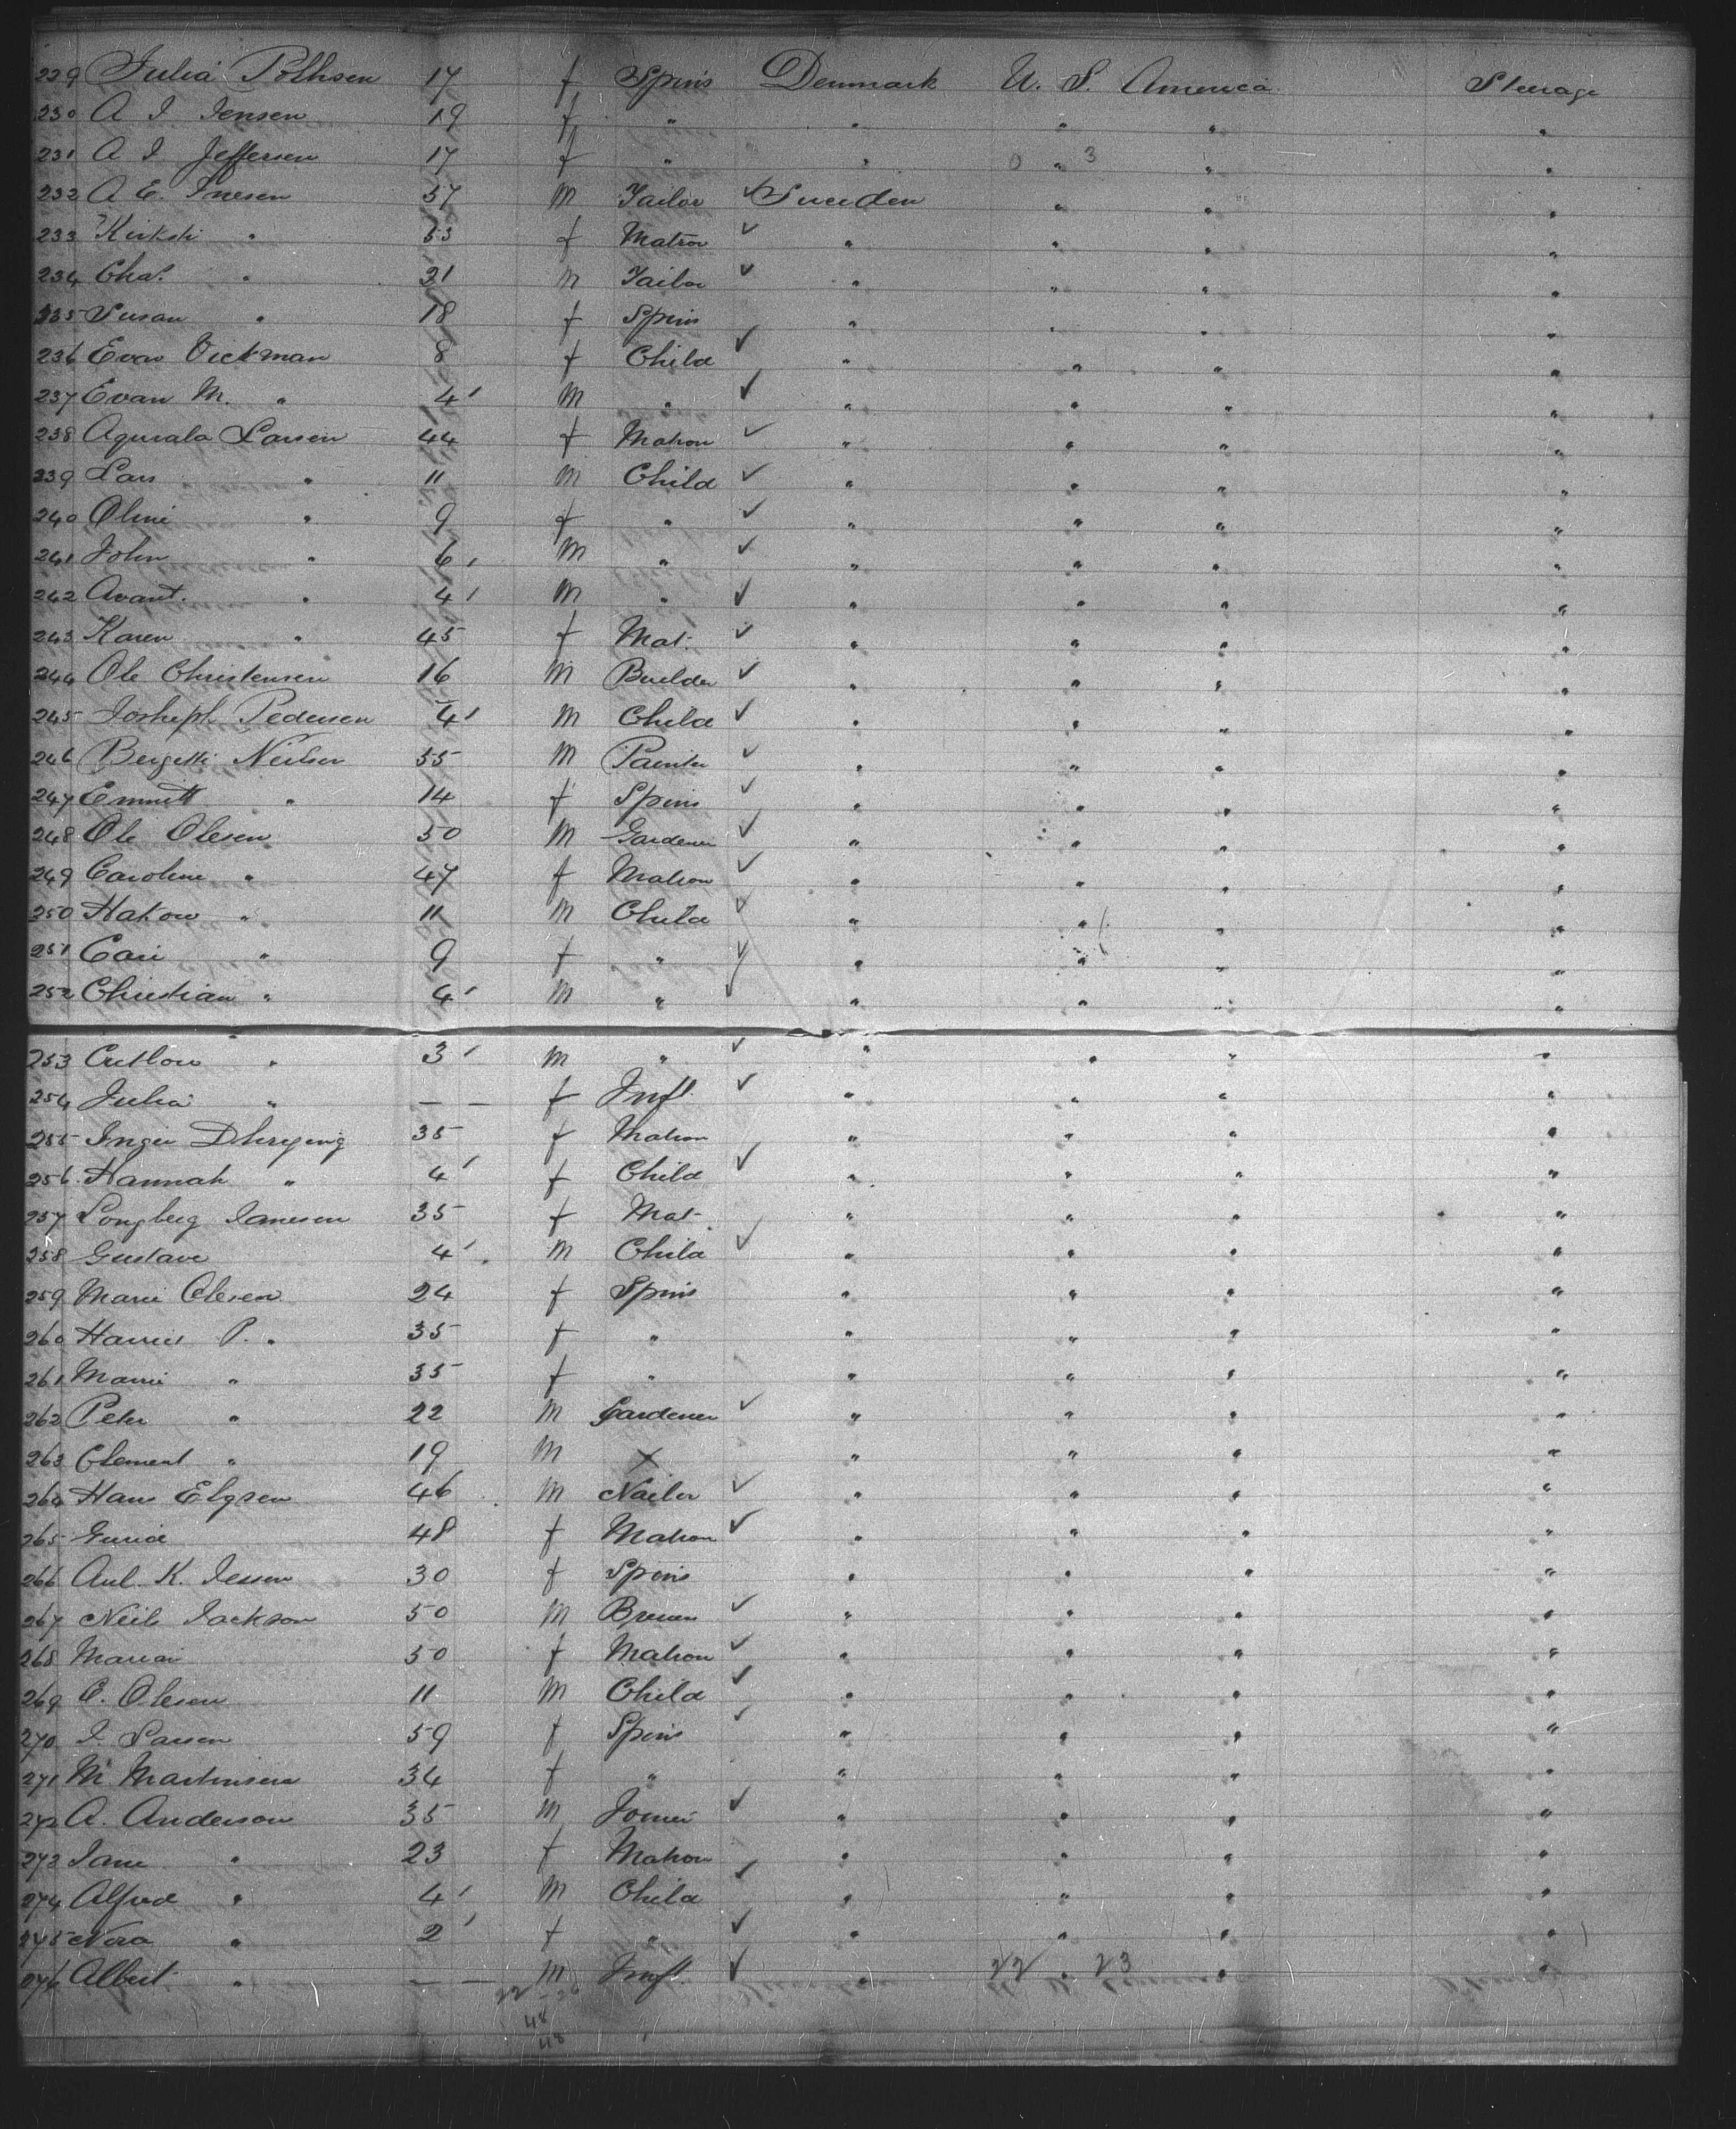 229 Julia Polhsen 17 f Spins Denmark U. S. America Steerage
230 A I Jensen 19 f " " " " "
231 A I Jeffersen 17 f " " 0 " 3 " "
232 A E. Inesen 57 M Tailor ✓ Sweden " " "
233 Kirksti " 53 f Matron ✓ " " " "
234 Chas. " 21 M Tailor ✓ " " " "
235 Susan " 18 f Spins " " " "
236 Evan Vickman 8 f Child ✓ " " " "
237 Evan M. " 4 M " ✓ " " " "
238 Agurala Larsen 44 f Matron ✓ " " " "
239 Lars " 11 M Child ✓ " " " "
240 Oline " 9 f " ✓ " " " "
241 John " 6 M " ✓ " " " "
242 Avant. " 4 M " ✓ " " " "
243 Karen " 45 f Mat. ✓ " " " "
244 Ole Christensen 16 M Builder ✓ " " " "
245 Josheph Pedersen 4 M Child ✓ " " " "
246 Bergetti Neilsen 55 M Painter ✓ " " " "
247 Emmitt " 14 f Spins ✓ " " " "
248 Ole Olesen 50 M Gardener ✓ " " " "
249 Caroline " 47 f Matron ✓ " " " "
250 Hakon " 11 M Child ✓ " " " "
251 Cari " 9 f " ✓ " " " "
252 Christian " 4 M " ✓ " " " "
253 " 3 M " ✓ " " " "
254 Julia " — — f Inft. ✓ " " " "
255 Inger 35 f Matron " " " "
256 Hannah " 4 f Child ✓ " " " "
257 Longberg Jamesen 35 f Mat. " " " "
258 Gustave 4 M Child ✓ " " " "
259 Marie Olesen 24 f Spins " " " "
260 Harriet P. " 35 f " " " " "
261 Marrie " 35 f " " " " "
262 Peter " 22 M Gardener ✓ " " " "
263 Clement " 19 M X " " " "
264 Hans Elgsen 46 M Nailor ✓ " " " "
265 Guria 48 f Matron ✓ " " " "
266 K. Jessen 30 f Spins " " " "
267 Neils Jackson 50 M Brewer ✓ " " " "
268 Maria 50 f Matron ✓ " " " "
269 C. Olesen 11 M Child ✓ " " " "
270 I. Larsen 59 f Spins ✓ " " " "
271 M. Martinsen 34 f " " " " "
272 A. Anderson 35 M Joiner ✓ " " " "
273 Jane " 23 f Matron " " " "
274 Alfred " 4 M Child ✓ " " " "
275 Nora " 2 f " ✓ " " " "
276 Albert " — — M Inft. ✓ " 22 " 23 " "
22 - 26
48
48